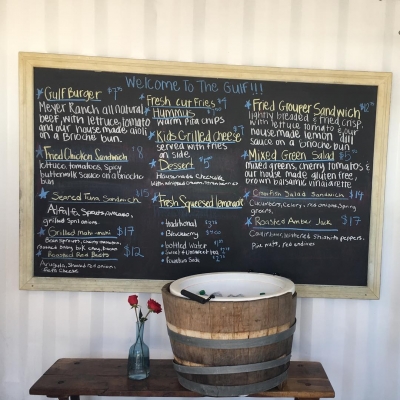 Welcome To The Gulf!!!
Gulf Burger
Meyer Ranch all natural
beef, with lettuce, tomato
and our house made aioli
on a Brioche bun.
Fried Chicken Sandwich
lettuce, tomatoes, spicy
buttermilk sauce on a brioche
bun
Seared Tuna Sandwich
Alfalfa, Sprouts, tomato,
grilled onions
Grilled Mahi-mahi $17
Bean Sprouts, cherry tomatoes,
Roasted Red Beets $12
Arugula, Shaved red onion,
Feta Cheese
Fresh Cut Fries
Hummus
warm pita chips
Kids Grilled Cheese
served with fries
on side
Dessert $5
Housemade Cheesecake
with whipped cream
Fresh Squeezed Lemonade
traditional
Blackberry
bottled Water
Fountain Soda
Fried Grouper Sandwich
lightly breaded & fried crisp
with lettuce tomato & our
house made lemon dill
sauce on a brioche bun
Mixed Green Salad
mixed greens, cherry tomatoes &
our house made gluten free
brown balsamic vinaigrette
Crawfish Salad Sandwich $14
Cucumbers, Celery, red onion, Spring
greens,
Roasted Amber Jack $17
Shishito peppers,